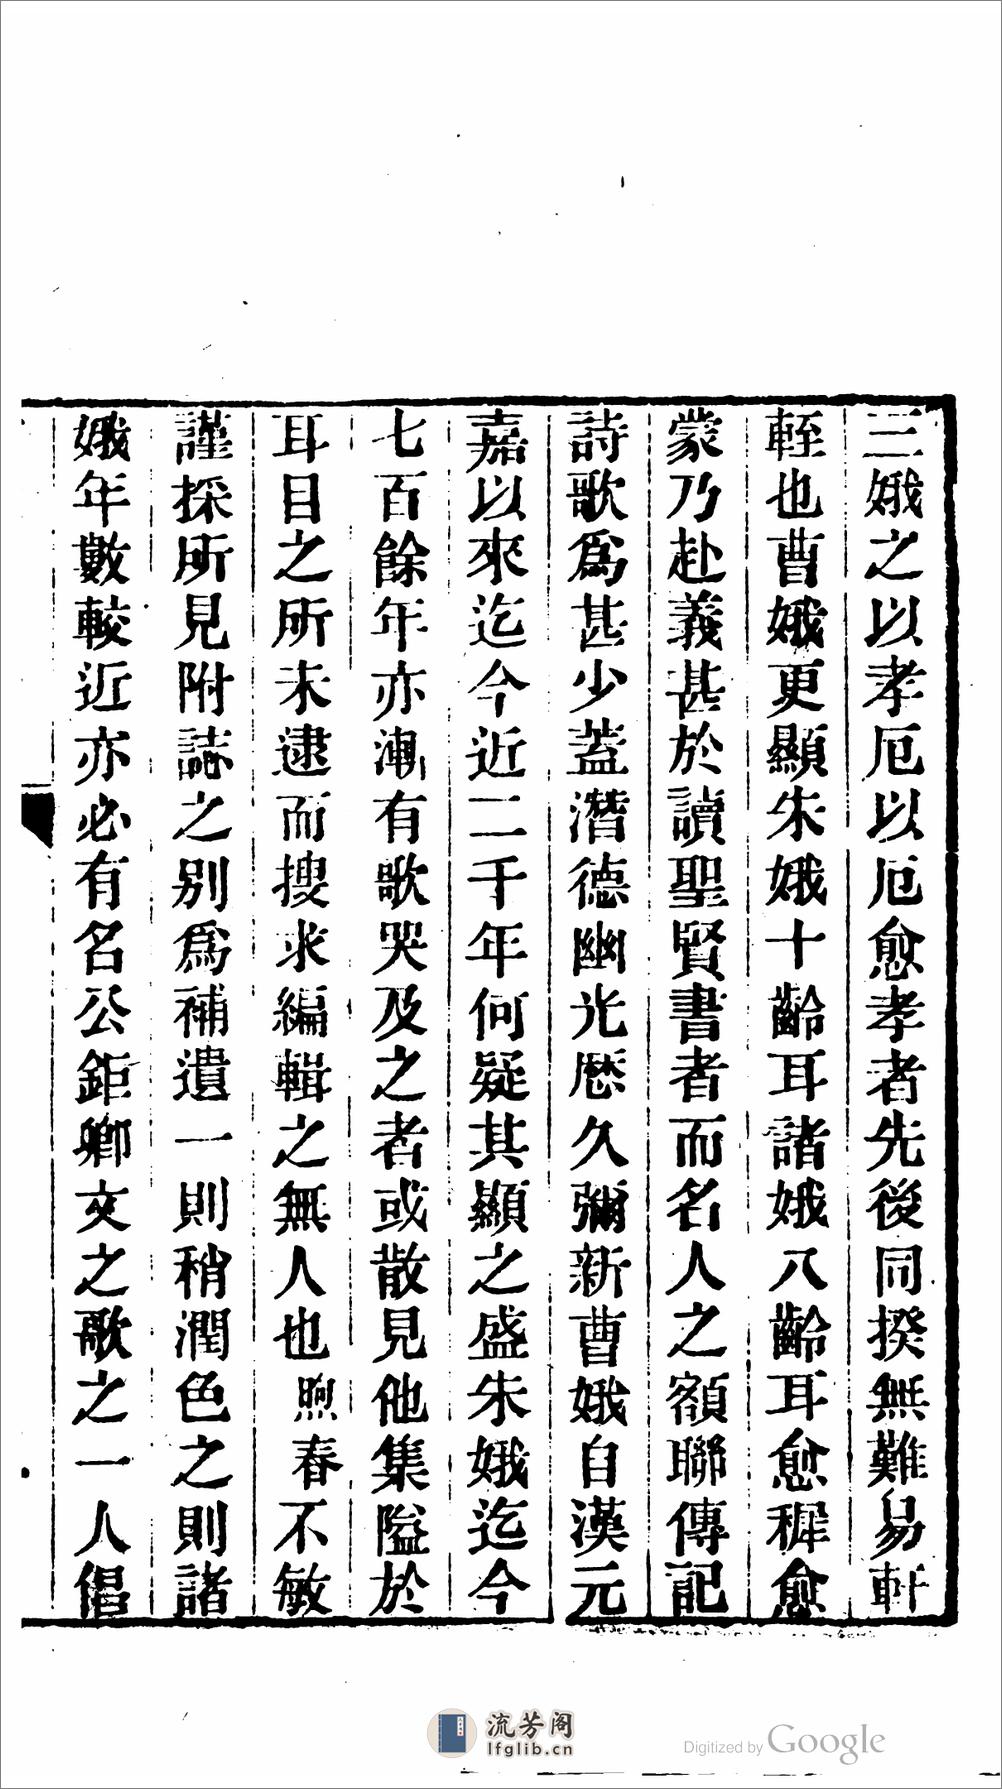 三娥之以孝厄以厄愈孝者先後同揆無難易軒
輊也曹娥更顯朱娥十齡耳諸娥八齡耳愈穉愈
蒙乃赴義甚於讀聖賢書者而名人之額聯傳記
詩歌爲甚少蓋潛德幽光歷久彌新曹娥自漢元
嘉以來迄今近二千年何疑其顯之盛朱娥迄今
七百餘年亦漸有歌哭及之者或散見他集隘於
耳目之所未逮而搜求編輯之無人也煦春不敏
謹採所見附誌之别爲補遺一則稍潤色之則諸
娥年數較近亦必有名公鉅卿文之歌之一人倡
流芳阁
lfglib.cn
Digitized by Google